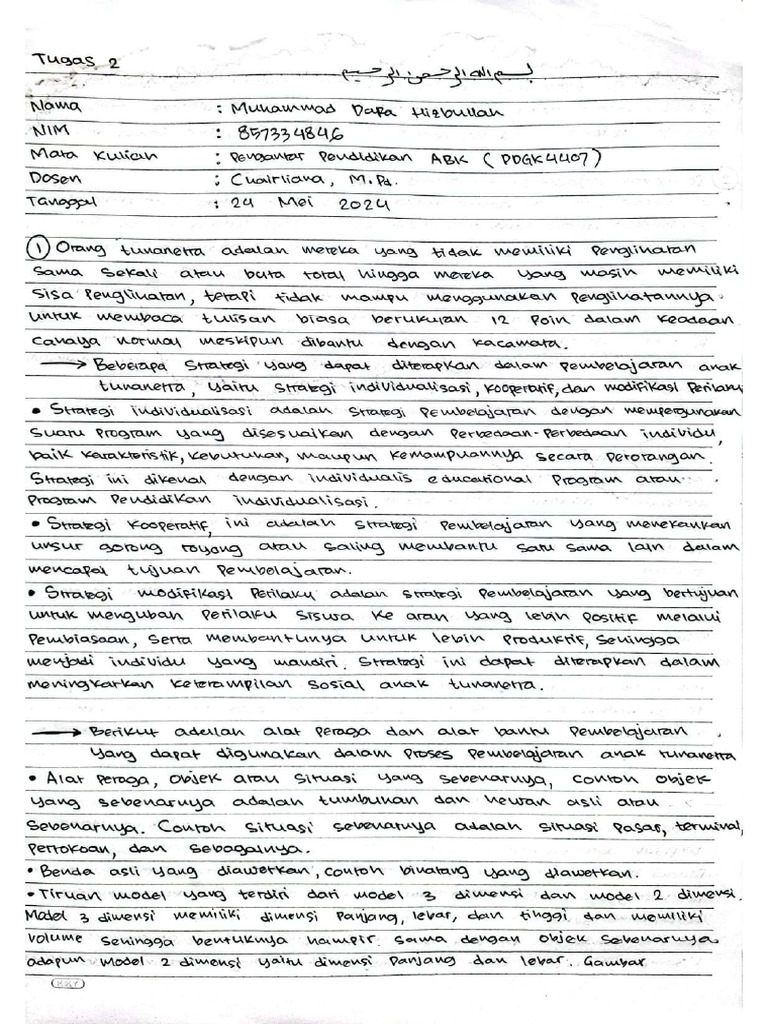 Tugas 2
بسم الله الرحمن الرحيم
Nama : Muhammad Dafa Hizbullah
NIM : 857334846
Mata Kuliah : Pengantar Pendidikan ABK (PDGK4407)
Dosen : Chairliana, M.Pd.
Tanggal : 24 Mei 2024
① Orang tunanetra adalah mereka yang tidak memiliki Penglihatan
sama sekali atau buta total hingga mereka yang masih memiliki
sisa Penglihatan, tetapi tidak mampu menggunakan Penglihatannya
untuk membaca tulisan biasa berukuran 12 Poin dalam keadaan
cahaya normal meskipun dibantu dengan kacamata.
→ Beberapa strategi yang dapat diterapkan dalam pembelajaran anak
tunanetra, yaitu strategi individualisasi, kooperatif, dan modifikasi Perilaku
• Strategi individualisasi adalah strategi Pembelajaran dengan mempergunakan
suatu program yang disesuaikan dengan Perbedaan-Perbedaan individu,
baik karakteristik, kebutuhan, maupun kemampuannya secara perorangan.
Strategi ini dikenal dengan individualis educational Program atau
Program Pendidikan individualisasi.
• Strategi kooperatif, ini adalah strategi Pembelajaran yang menekankan
unsur gotong royong atau saling membantu satu sama lain dalam
mencapai tujuan Pembelajaran.
• Strategi modifikasi Perilaku adalah strategi Pembelajaran yang bertujuan
untuk mengubah Perilaku siswa ke arah yang lebih positif melalui
Pembiasaan, serta membantunya untuk lebih Produktif, sehingga
menjadi individu yang mandiri. Strategi ini dapat diterapkan dalam
meningkatkan keterampilan sosial anak tunanetra.
→ Berikut adallah alat Peraga dan alat bantu Pembelajaran
yang dapat digunakan dalam Proses Pembelajaran anak tunanetra
• Alat Peraga, objek atau situasi yang sebenarnya, contoh objek
yang sebenarnya adalah tumbuhan dan hewan asli atau
Sebenarnya. Contoh situasi sebenarnya adalah situasi Pasar, terminal,
Pertokoan, dan sebagainya.
• Benda asli yang diawetkan, contoh binatang yang diawetkan.
• Tiruan model yang terdiri dari model 3 dimensi dan model 2 dimensi.
Model 3 dimensi memiliki dimensi Panjang, lebar, dan tinggi dan memiliki
volume sehingga bentuknya hampir sama dengan objek sebenarnya
adapun Model 2 dimensi yaitu dimensi Panjang dan lebar. Gambar
KKY